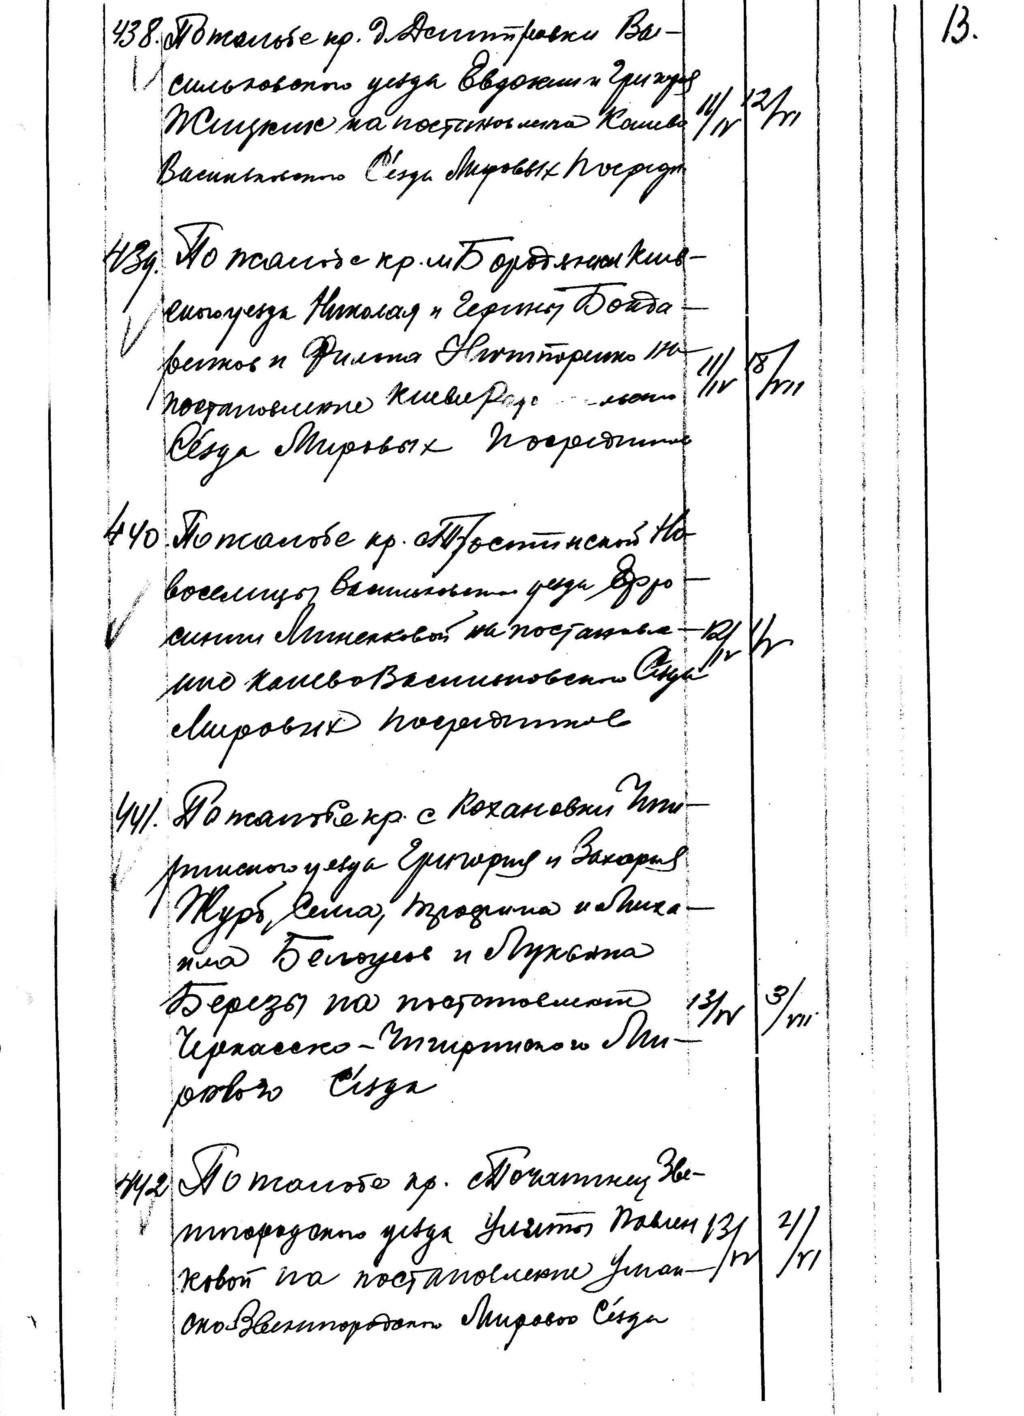 13.
438. По жалобе кр. д. Дмитровки Ва-
сильковского уезда Евдокии и Григория
на постановление Киево
Васильковского Съезда Мировых Посредн
11/IV 12/VI
439. По жалобе кр. м Бородянки Киев-
ского уезда Николая и Бонда-
ренков и Филиппа Нитпоренко на
постановление Киево
Съезда Мировых Посредников
11/IV 18/VII
440 По жалобе кр. с Тростинской Но-
воселицы Васильковского уезда Ефро-
синии Миненковой на постановле-
ние Киево Васильковского Съезда
Мировых Посредников
12/IV 1/V
441. По жалобе кр. с Кохановки Чиги-
ринского уезда Григория и Захария
Журб, Трофима и Миха-
ила Белоусов и Лукьяна
Березы на постановление
Черкасско-Чигиринского Ми-
рового Съезда
13/IV 3/VII
442 По жалобе кр. с Почапинец Зве-
нигородского уезда Улиты Павлен
ковой на постановление Уман-
ско Звенигородского Мирового Съезда
13/IV 21/VI